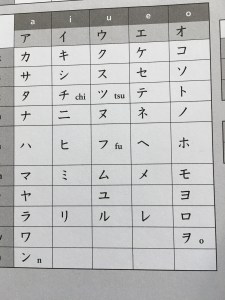 a i u e o
ア イ ウ エ オ
カ キ ク ケ コ
サ シ ス セ ソ
タ チ chi ツ tsu テ ト
ナ ニ ヌ ネ ノ
ハ ヒ フ fu ヘ ホ
マ ミ ム メ モ
ヤ ユ ヨ
ラ リ ル レ ロ
ワ ヲ o
ン n